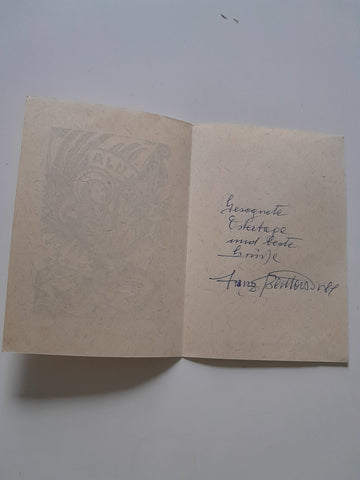 Gesegnete
Ostertage
und beste
Grüße
Franz